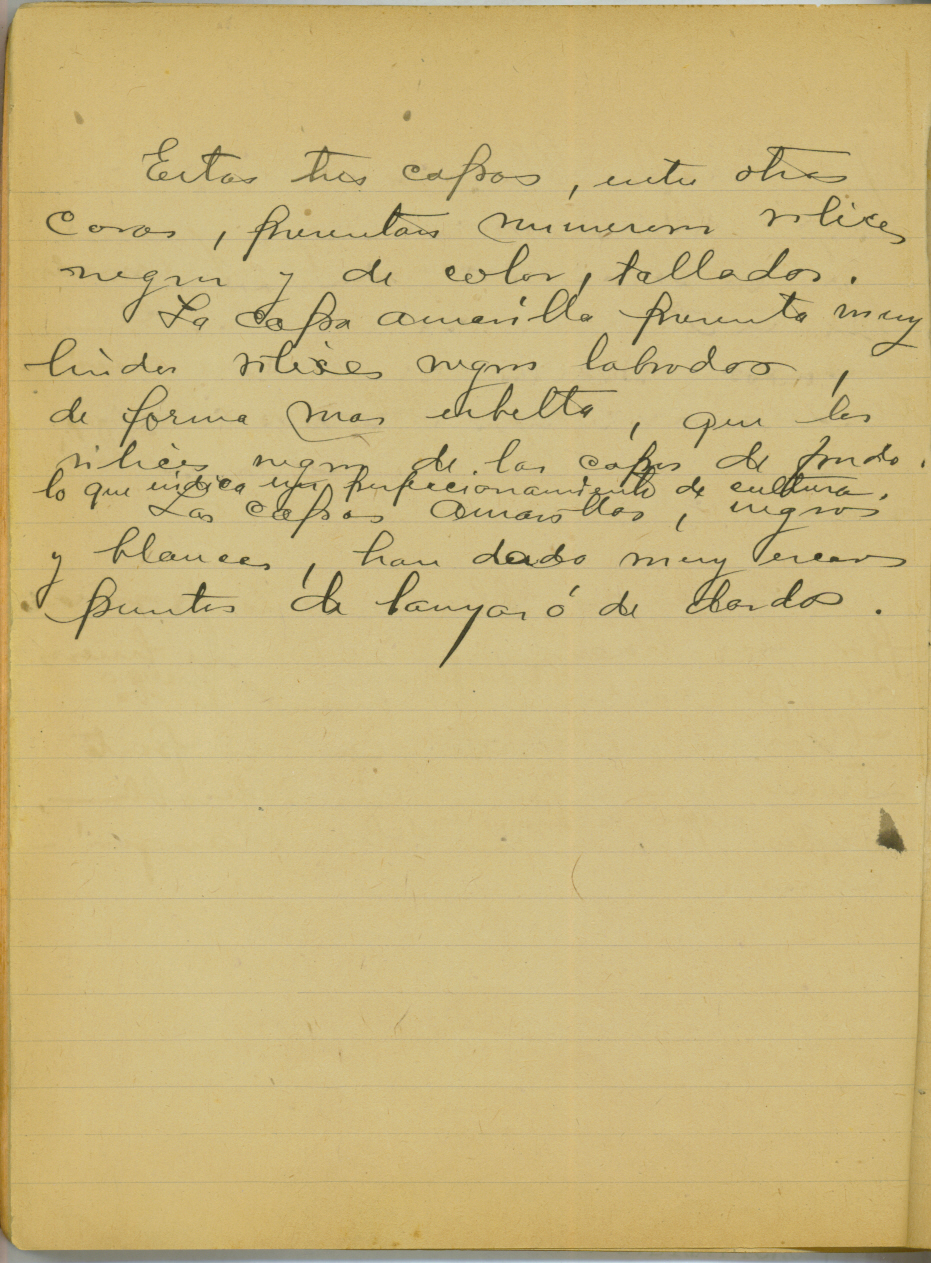 Estas tres capas, entre otras
cosas, presentan numerosos silices
negros y de color, tallados.
La capa amarilla presenta muy
lindos silices negros labrados,
de forma mas esbelta, que los
silices negros de las capas de fondo.
lo que indica un perfeccionamiento de cultura.
Las capas amarillas, negras
y blancas, han dado muy escasos
puntas de lanza ó de dardos.